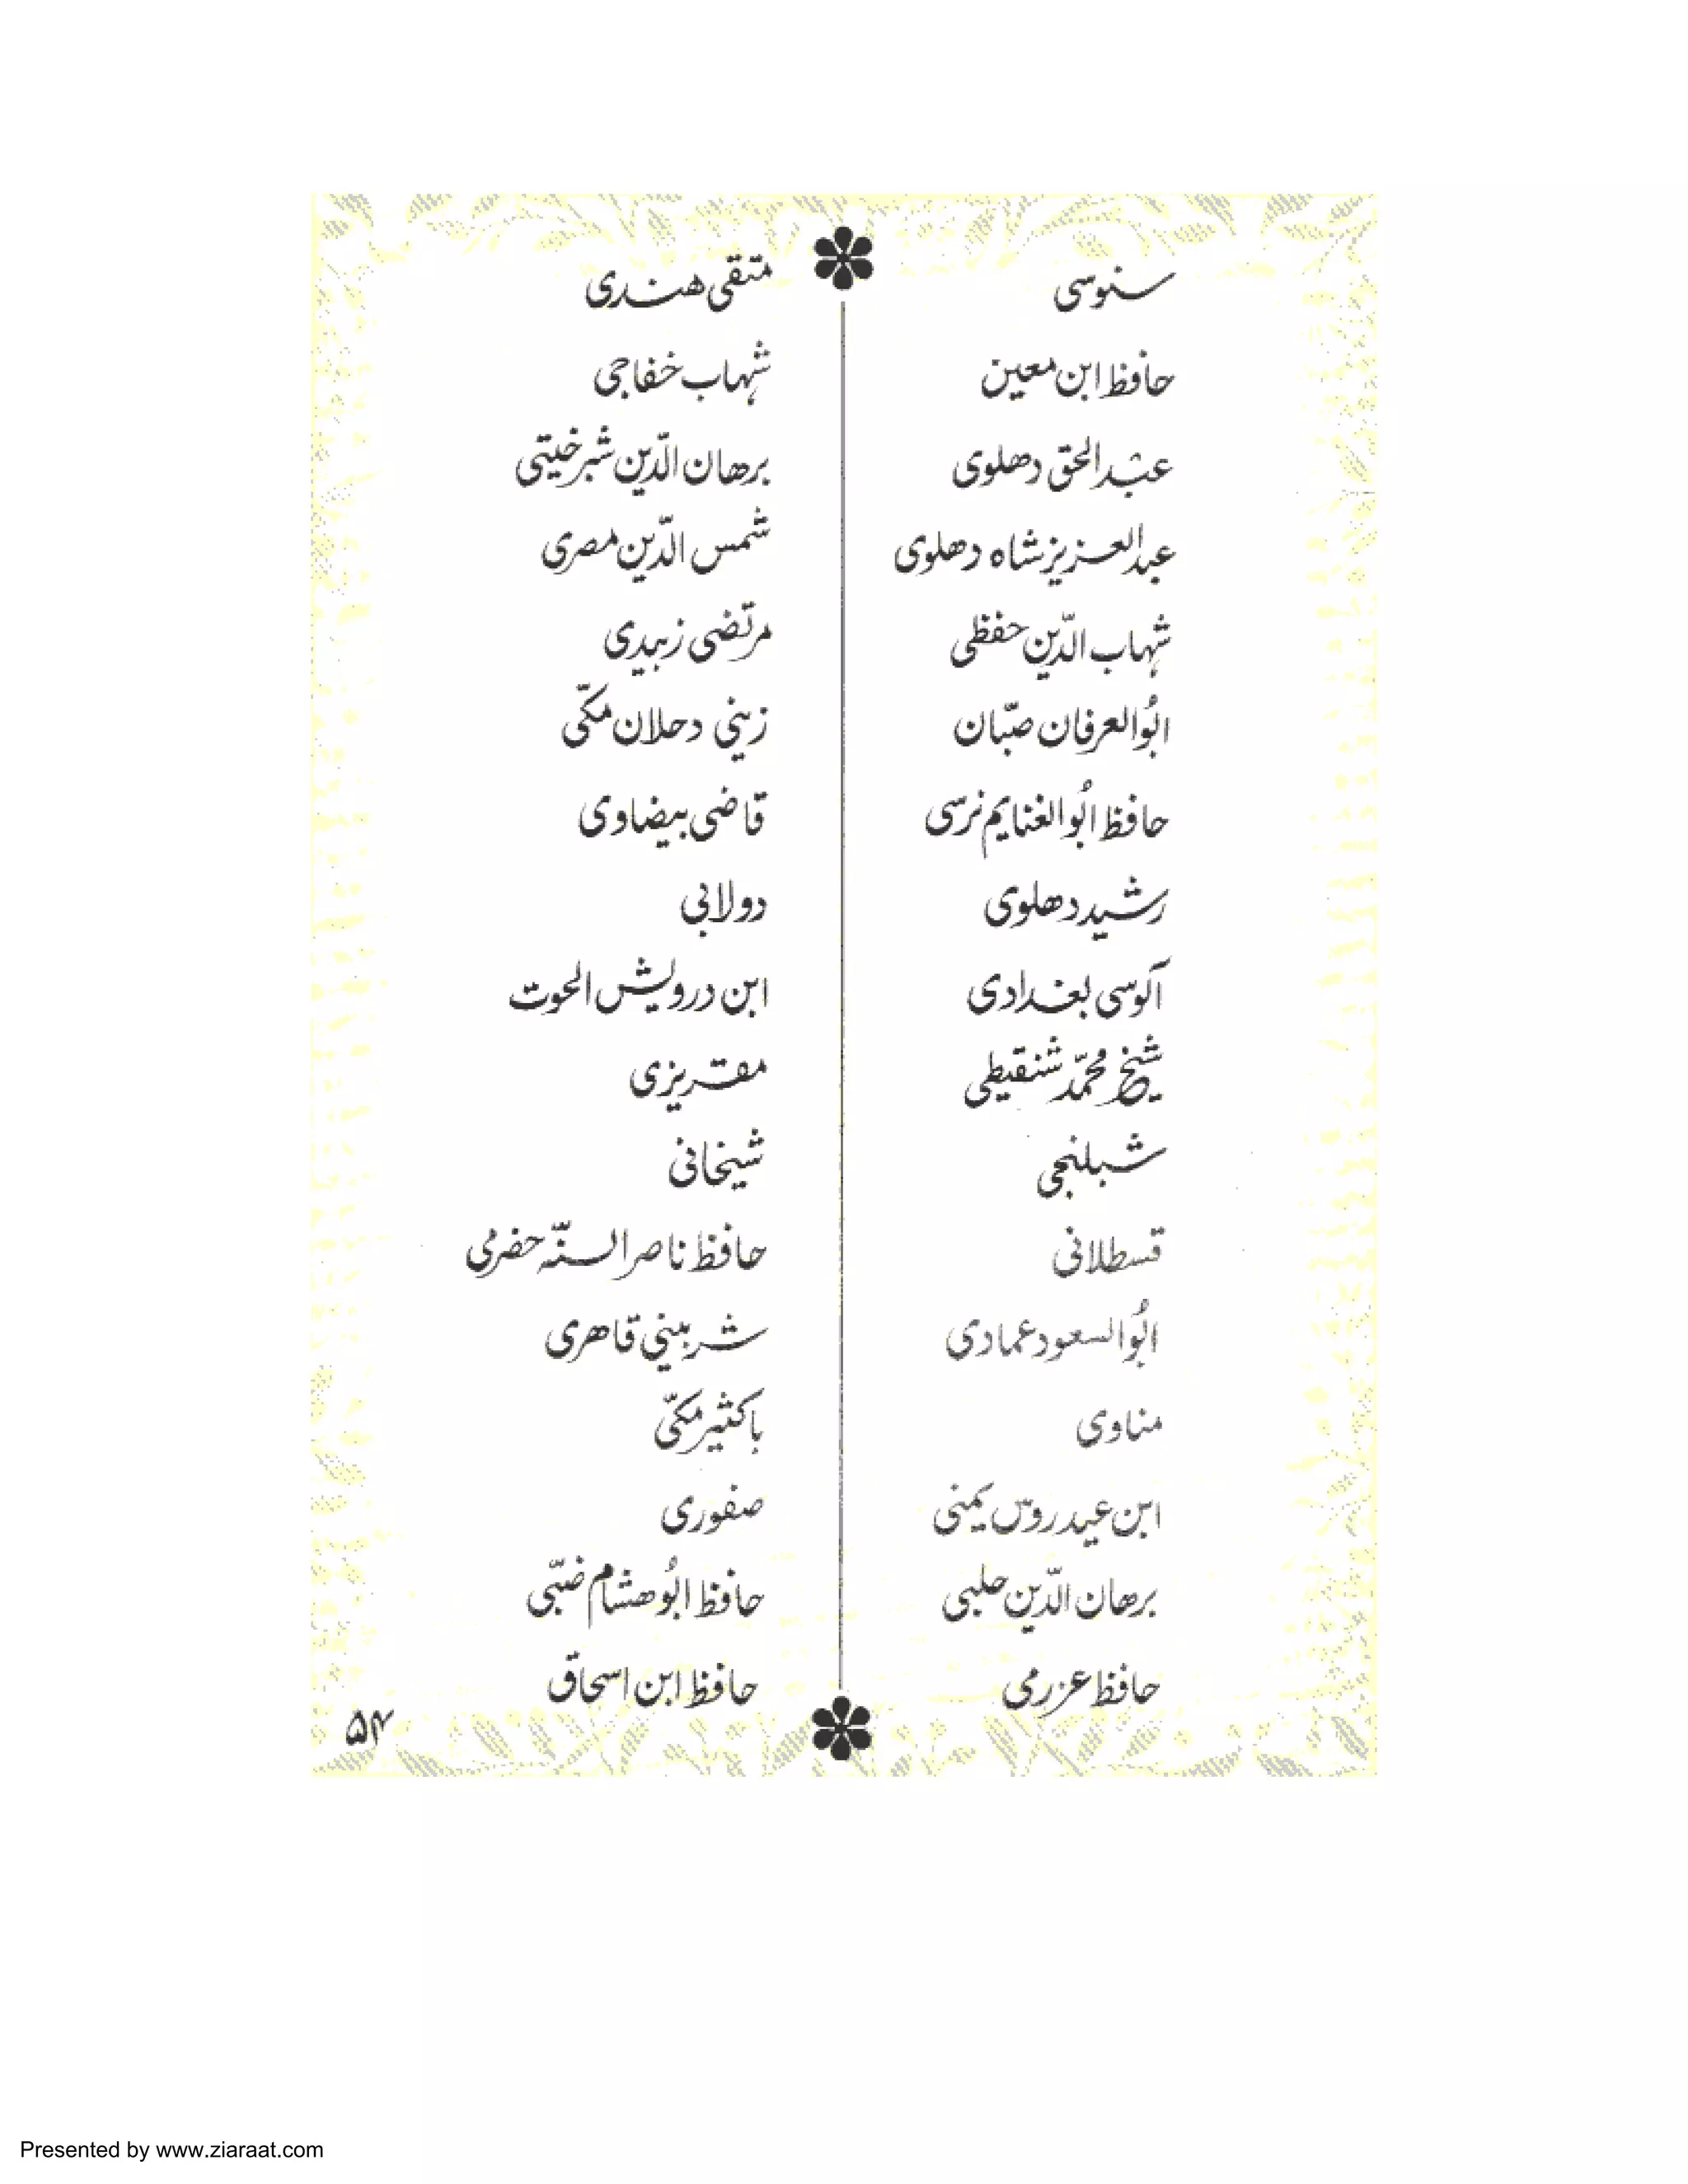 سنوسی
حافظ ابن معین
عبدالحق دهلوی
عبدالعزیز شاه دهلوی
شهاب الدّین حفظی
ابُوالعرفان صبّان
حافظ ابُوالغنایم نرسی
رشید دهلوی
آلوسی بغدادی
شیخ محمّد شنقیطی
شبلنجی
قسطلانی
ابُوالسعود عمادی
مناوی
ابن عیدروس یمنی
برهان الدّین حلبی
حافظ عزرمی
متقی هندی
شهاب خفاجی
برهان الدّین شبرخیتی
شمس الدّین مصری
مرتضی زبیدی
زینی دحلان مکّی
قاضی بیضاوی
دولابی
ابن درویش الحوت
مقریزی
شیخانی
حافظ ناصر السنّه حضرمی
شربینی قاهری
باکثیر مکّی
صفوری
حافظ ابُوهشام ضبّی
حافظ ابن اسحاق
۵۴
Presented by www.ziaraat.com